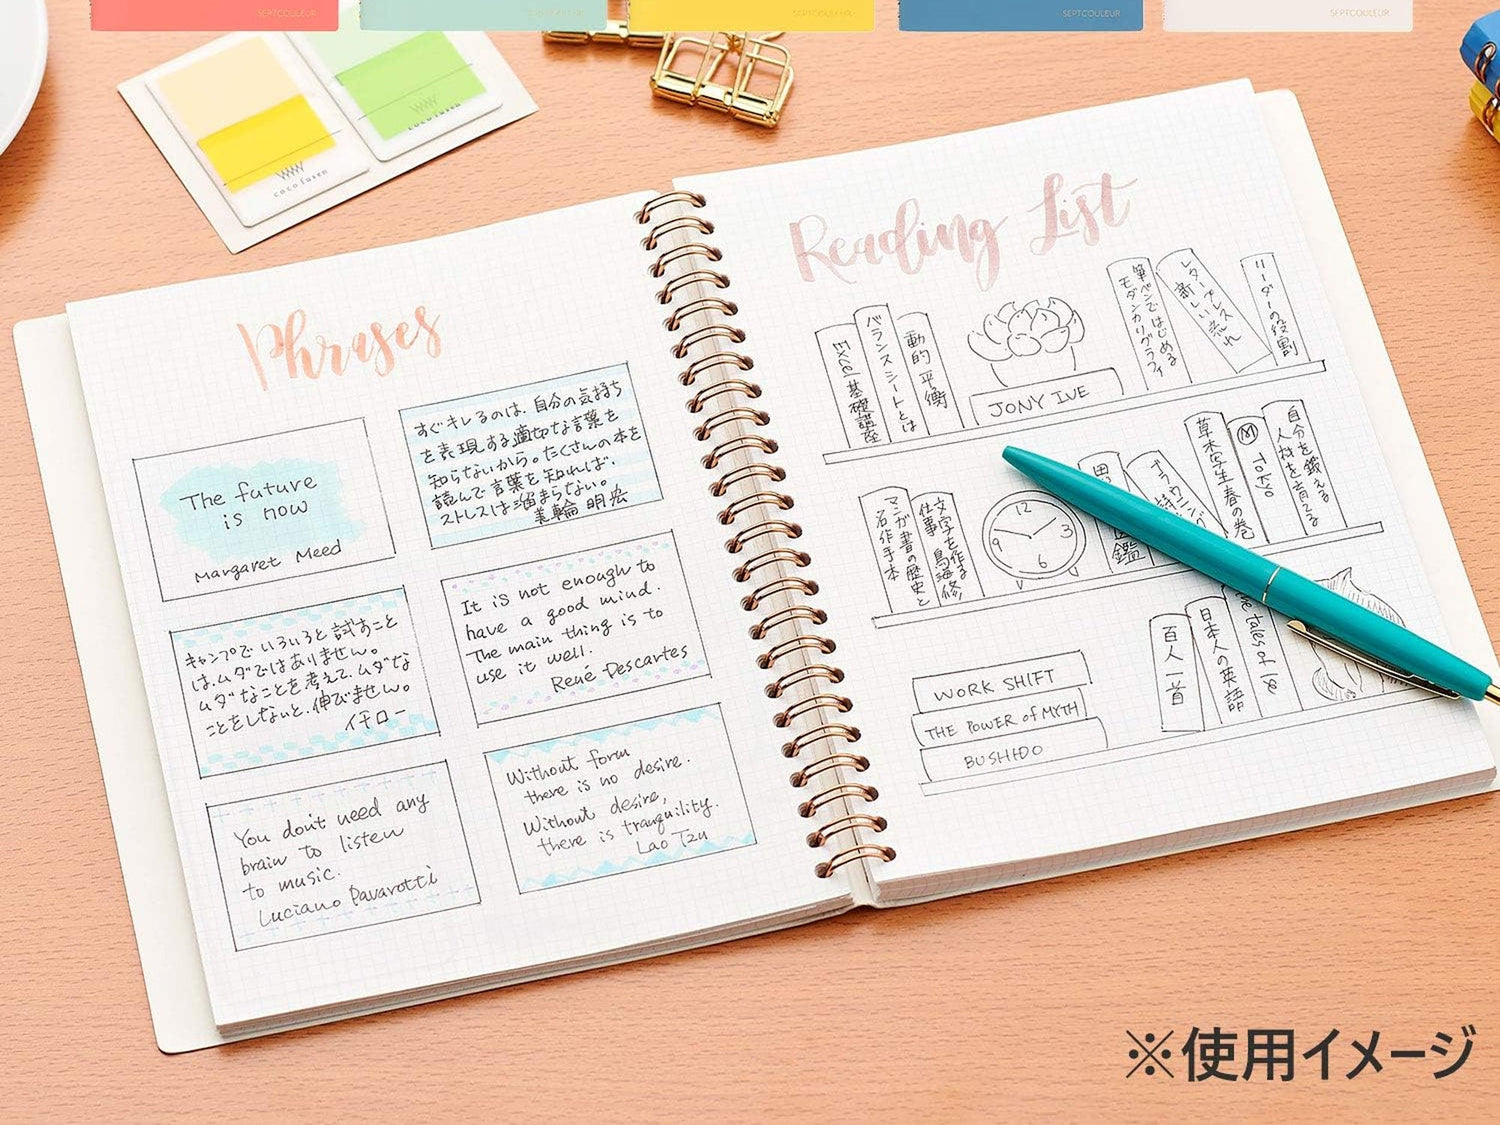 SEPTCOULEUR
SEPTCOULEUR
SEPTCOULEUR
SEPTCOULEUR
SEPTCOULEUR
coco fusen
Phrases
The future
is now
Margaret Meed
すぐキレるのは、自分の気持ち
を表現する適切な言葉を
知らないから。たくさんの本を
読んで言葉を知れば、
ストレスは溜まらない。
美輪 明宏
キャンプでいろいろと試すこと
は、ムダではありません。
ムダなことを考えて、ムダな
ことをしないと、伸びません。
イチロー
It is not enough to
have a good mind.
The main thing is to
use it well.
René Descartes
You don't need any
brain to listen
to music.
Luciano Pavarotti
Without form
there is no desire.
Without desire,
there is tranquility.
Lao Tzu
Reading List
Excel 基礎講座
バランスシートとは
動的平衡
JONY IVE
筆ペンではじめる
モダンカリグラフィ
レタープレス
新しい流れ
リーダーの役割
マンガ書の歴史と
名作手本
文字を作る
仕事 鳥海修
12
3
6
9
図鑑
ブラウニング
草木写生 春の巻
M TOKYO
自分を鍛える
人材を育てる
WORK SHIFT
THE POWER of MYTH
BUSHIDO
百人一首
日本人の英語
the tales of
※使用イメージ